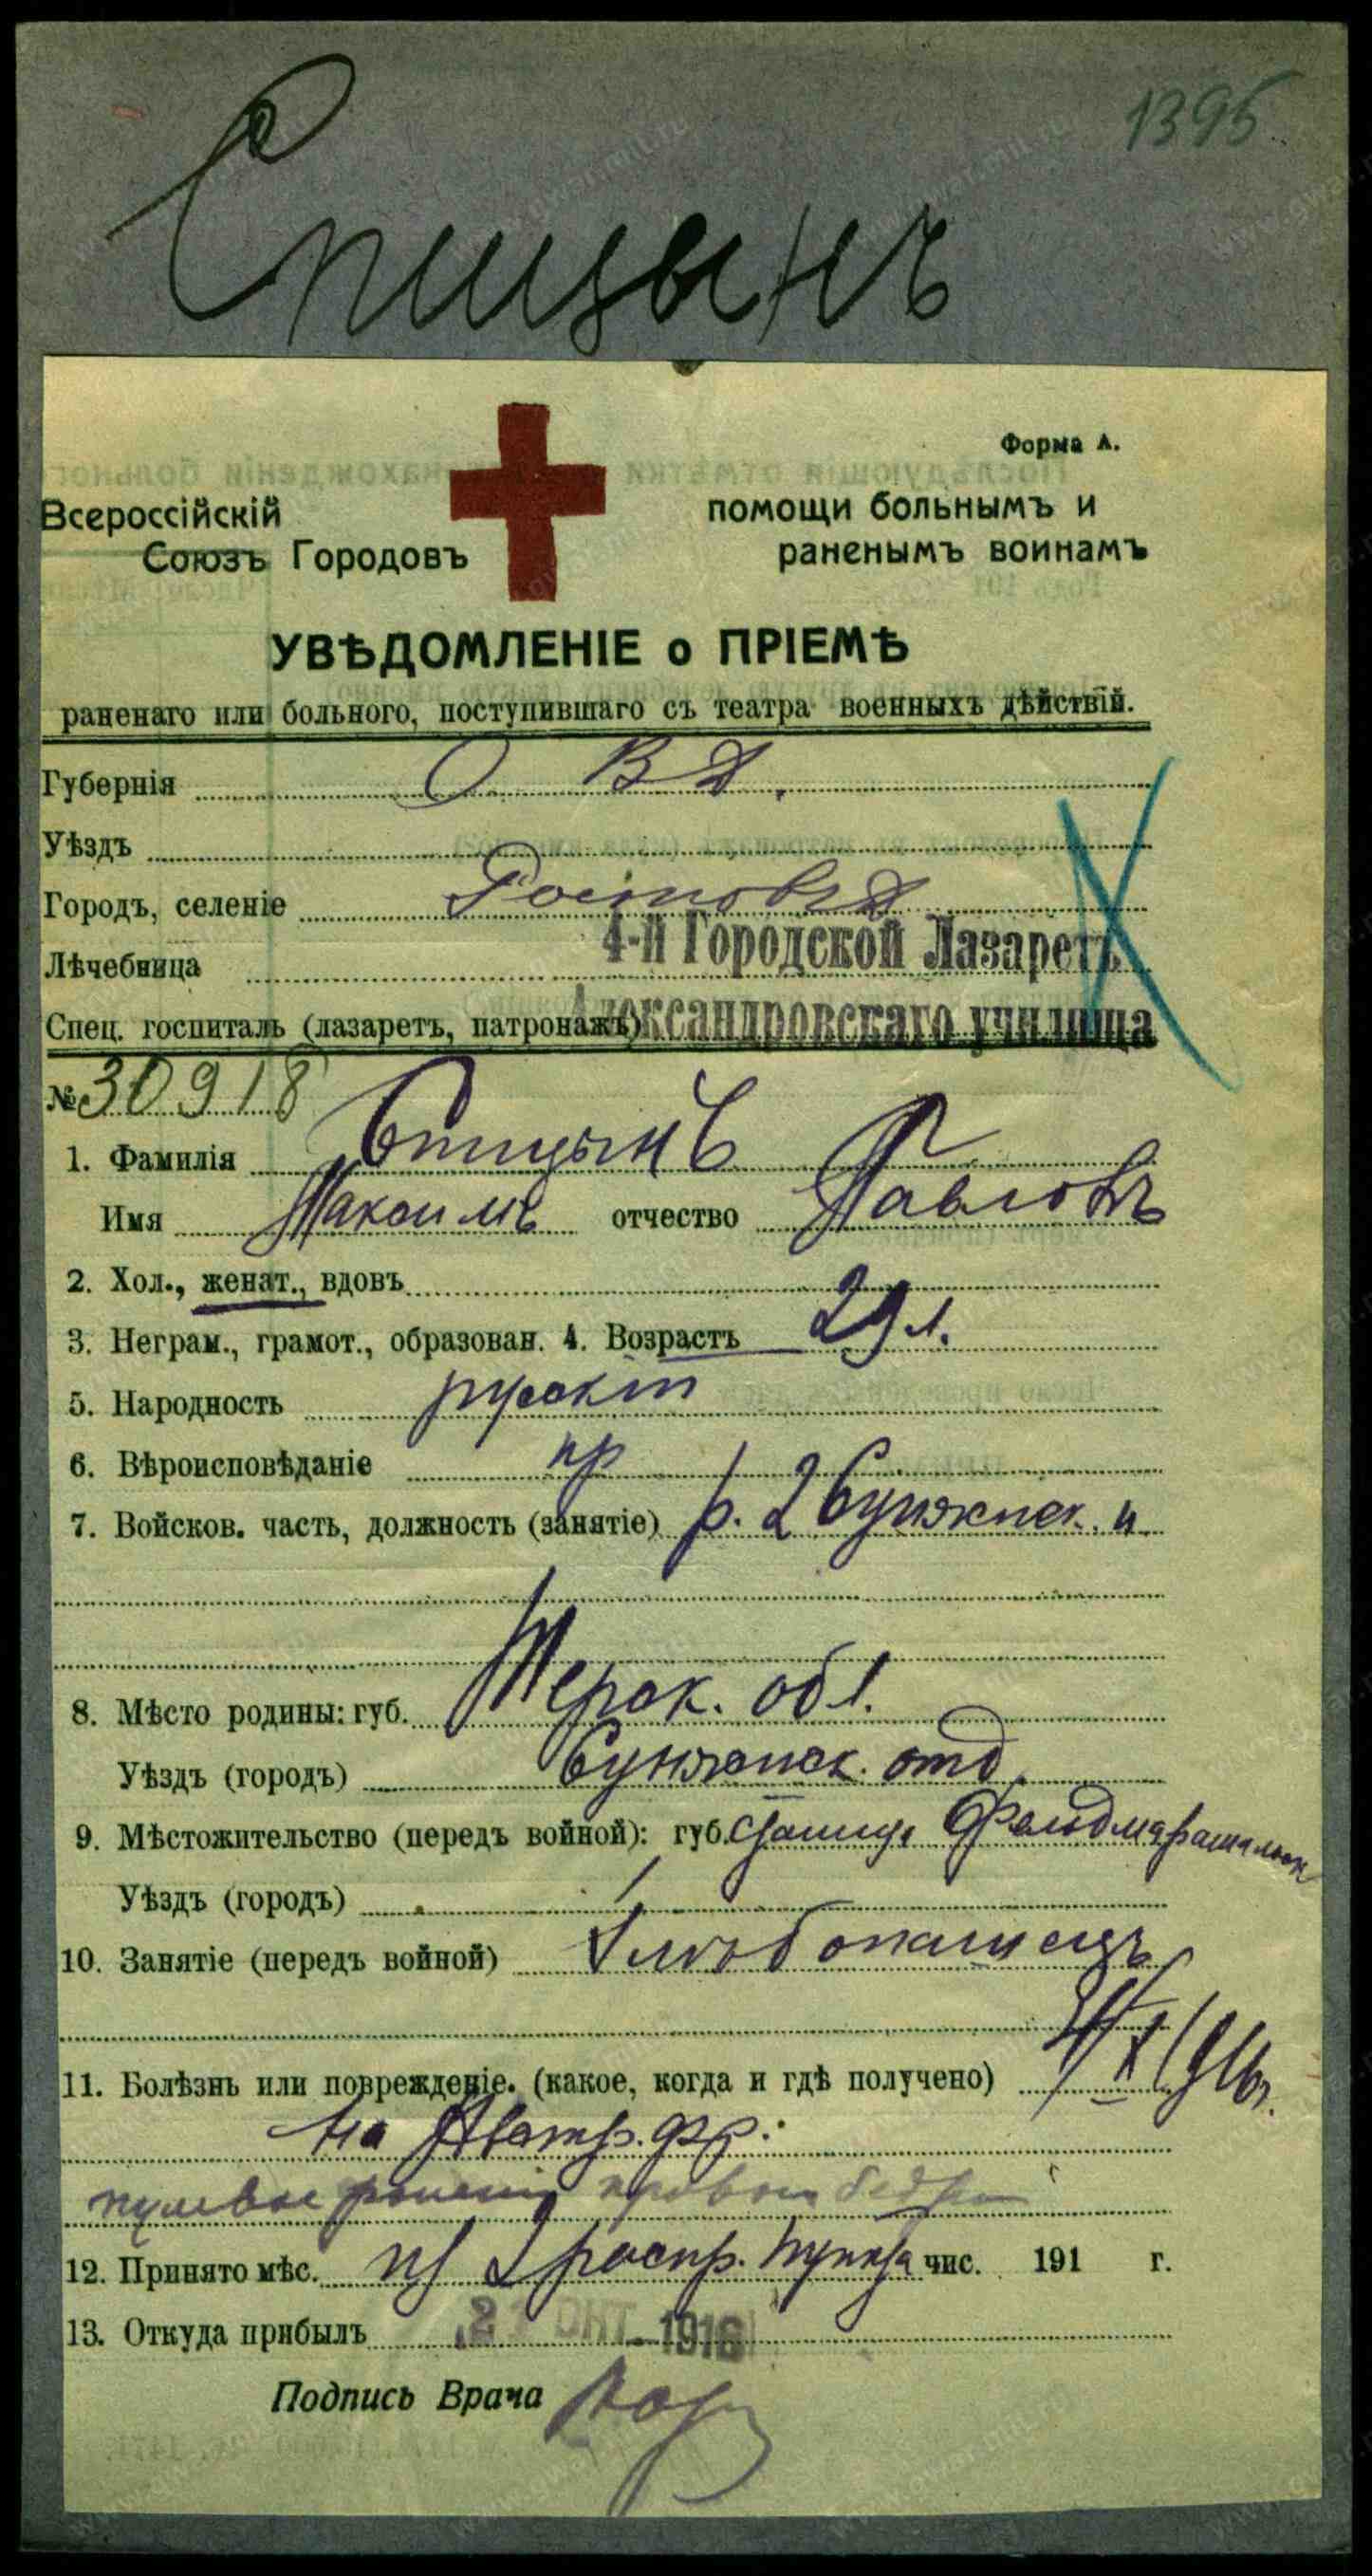 1395
Спицынъ
Форма А.
Всероссійскій
Союзъ Городовъ
помощи больнымъ и
раненымъ воинамъ
УВѢДОМЛЕНІЕ о ПРІЕМѢ
раненаго или больного, поступившаго съ театра военныхъ дѣйствій.
Губернія О В Д.
Уѣздъ
Городъ, селеніе Ростовъ Д
Лѣчебница 4-й Городской Лазаретъ
Спец. госпиталь (лазаретъ, патронажъ) Александровскаго училища
№ 30918
1. Фамилія Спицынъ
Имя Максимъ отчество Павловъ
2. Хол., женат., вдовъ
3. Неграм., грамот., образован. 4. Возрастъ 29 л.
5. Народность русскій
6. Вѣроисповѣданіе пр
7. Войсков. часть, должность (занятіе) р. 2 Сунженск. п.
8. Мѣсто родины: губ. Терск. обл.
Уѣздъ (городъ) Сунженск. отд
9. Мѣстожительство (передъ войной): губ. Фельдмаршальск
Уѣздъ (городъ)
10. Занятіе (передъ войной) хлѣбопашецъ
11. Болѣзнь или поврежденіе. (какое, когда и гдѣ получено) X 1916г.
На Австр. фр.
пулевое раненіе правого бедра
12. Принято мѣс. из 2 распр. пункта чис. 191 г.
13. Откуда прибылъ 21 ОКТ 1916
Подпись Врача